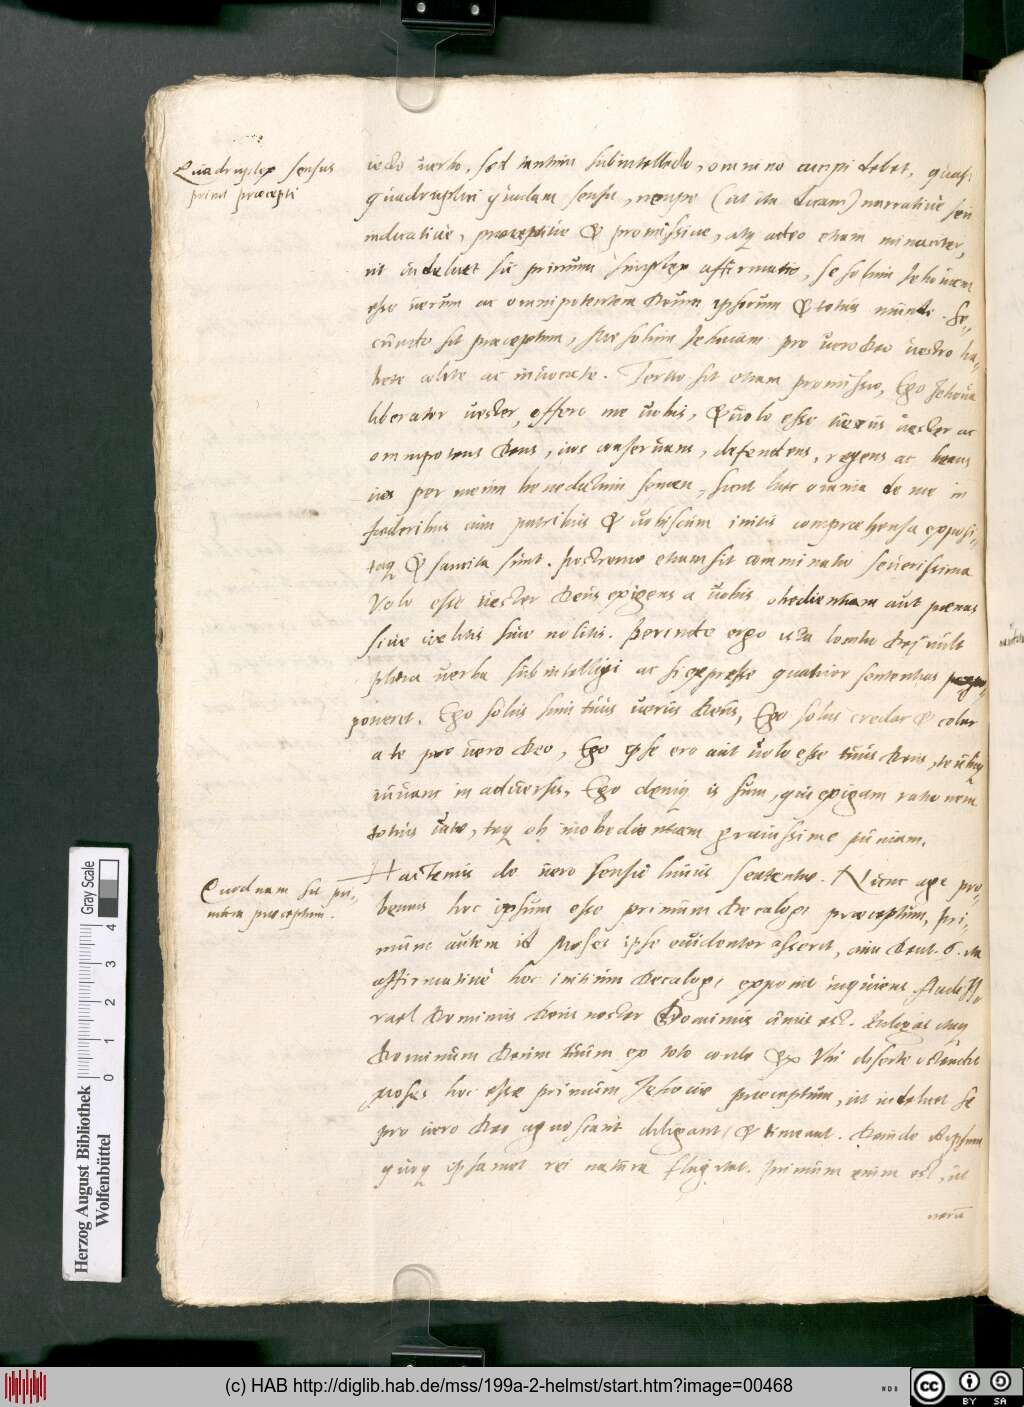 Quadruplex sensus
primi præcepti
iecto uerbo, sed tantum subintellecto, omnino accipi debet, quasi
quadruplici quodam sensu, nempe (ut ita dicam) narrative seu
indicative, præceptive & promissive, atq adeo etiam minaciter,
ut indubitet sit primum simplex affirmatio, se solum Jehovam
esse uerum ac omnipotentem Deum ipsorum & totius mundi. Se-
cundo sit præceptum, Me solum Jehovam pro uero Deo uestro ha-
bete colite ac invocate. Tertio sit etiam promissio, Ego Jehova
liberator uester, offero me uobis, & uolo esse uerus uester ac
omnipotens Deus, uos conservans, defendens, regens ac beans
uos per meum benedictum semen, sicut hæc omnia de me in
foederibus cum patribus & uobiscum initis comprehensa exposi-
taq & sancita sunt. Postremo etiam sit comminatio severissima
Volo esse uester Deus exigens a uobis obedientiam aut poenas
sive velitis sive nolitis. Perinde ergo ista Dei
uerba subintelligi ac si expresse quatuor sententias
poneret. Ego solus sum tuus uerus Deus, Ego solus credar & colar
a te pro uero Deo, Ego ipse ero aut uolo esse tuus Deus, te ubiq
iuvans in adversis, Ego deniq is sum, qui exigam rationem
totius uitæ, teq ob inobedientiam gravissime puniam.
Quodnam sit pri-
mum præceptum.
Hactenus de uero sensu huius sententiæ. Nunc age pro-
bemus hoc ipsum esse primum Decalogi præceptum, Pri-
mum autem id Moses ipse euidenter asserit, cum Deut. 6. ita
affirmative hoc initium Decalogi exponit inquiens Audi Is-
rael Dominus Deus noster Dominus unus est. Diliges itaq
Dominum Deum tuum ex toto corde &c Vbi diserte ostendit
Moses hoc esse primum Jehovæ præceptum, ut se
pro uero Deo agnoscant diligant, & timeant. Deinde
quoq ipsamet rei natura flagitat. Primum enim est, ut
uerū
Herzog August Bibliothek
Wolfenbüttel
Gray Scale
0 1 2 3 4
(c) HAB http://diglib.hab.de/mss/199a-2-helmst/start.htm?image=00468
cc BY SA